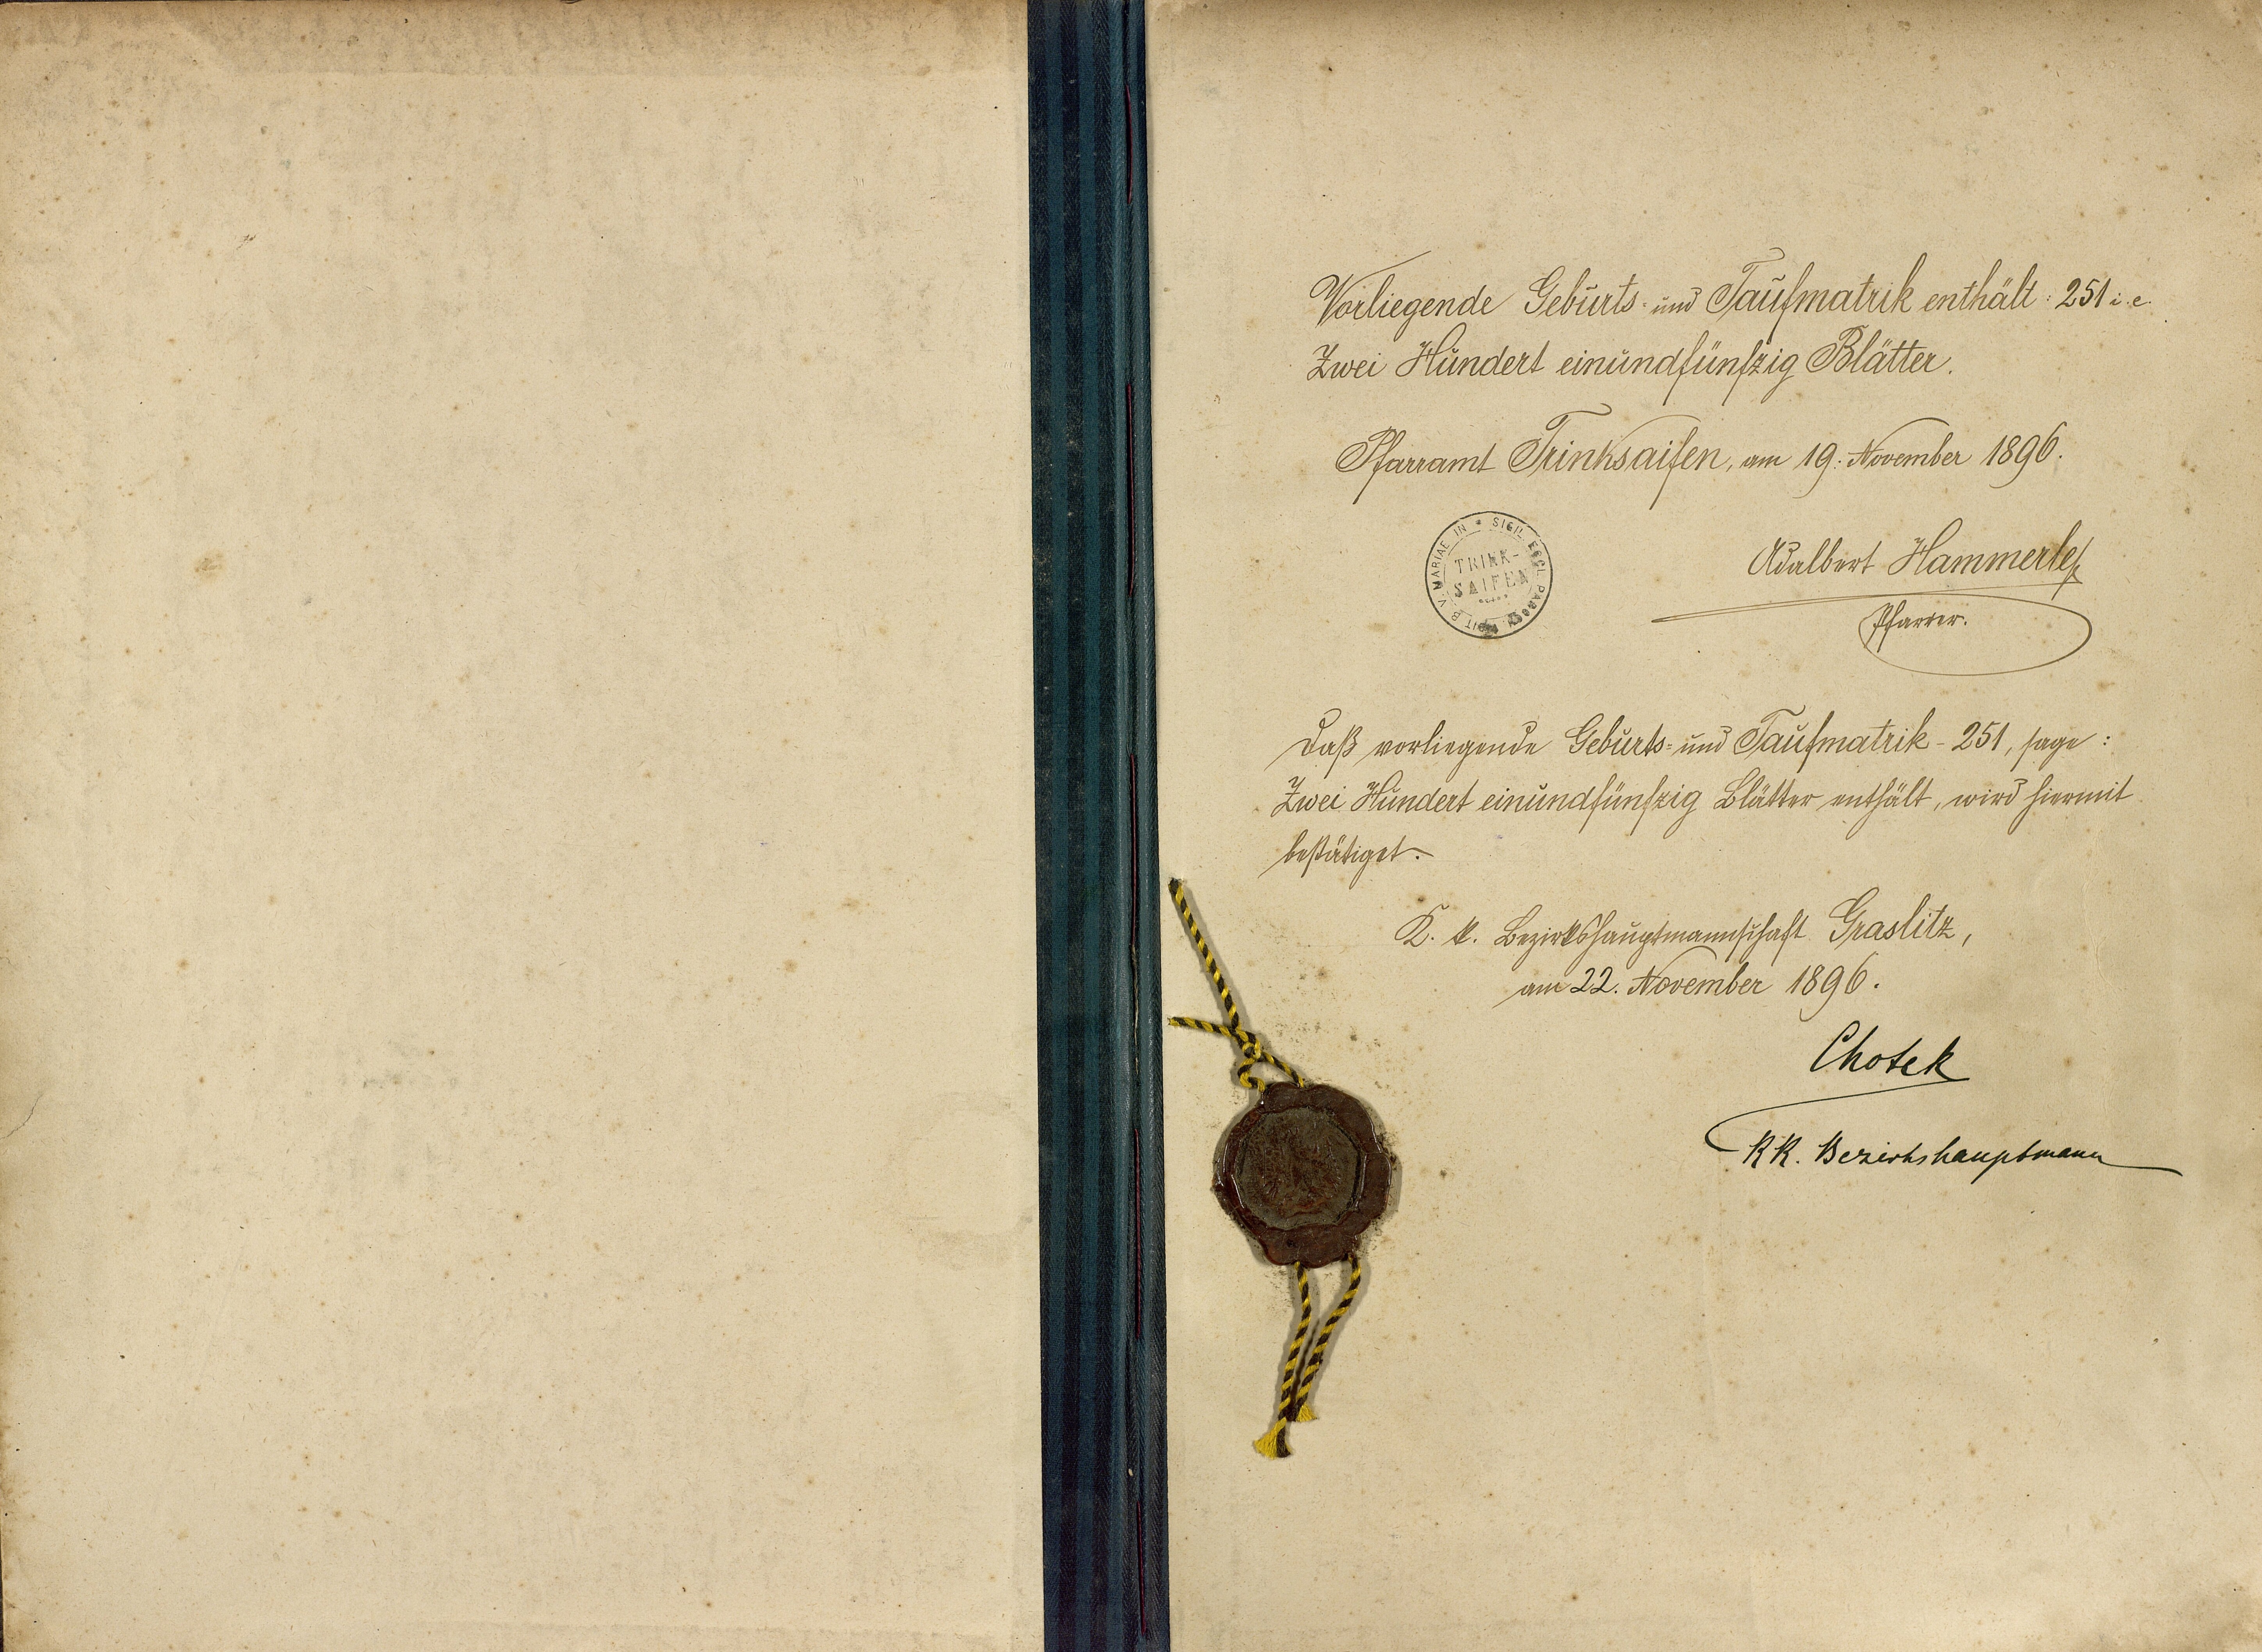 Vorliegende Geburts- und Taufmatrik enthält: 251 i. e.
Zwei Hundert einundfünfzig Blätter.
Pfarramt Trinksaifen, am 19. November 1896.
* SIGIL. ECCL. PAROCH. TIT. B. V. MARIAE IN
TRINK-
SAIFEN
Adalbert Hammerle
Pfarrer.
Daß vorliegende Geburts- und Taufmatrik - 251, sage:
Zwei Hundert einundfünfzig Blätter enthält, wird hiermit
bestätiget.
K. k. Bezirkshauptmannschaft Graslitz,
am 22. November 1896.
Chotek
KK. Bezirkshauptmann